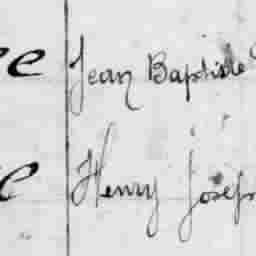 ee Jean Baptiste
e Henry Joseph